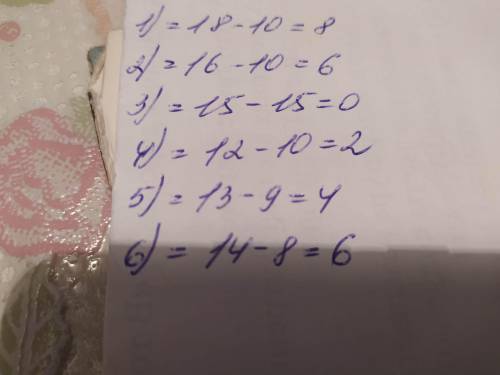 1) = 18 - 10 = 8
2) = 16 - 10 = 6
3) = 15 - 15 = 0
4) = 12 - 10 = 2
5) = 13 - 9 = 4
6) = 14 - 8 = 6